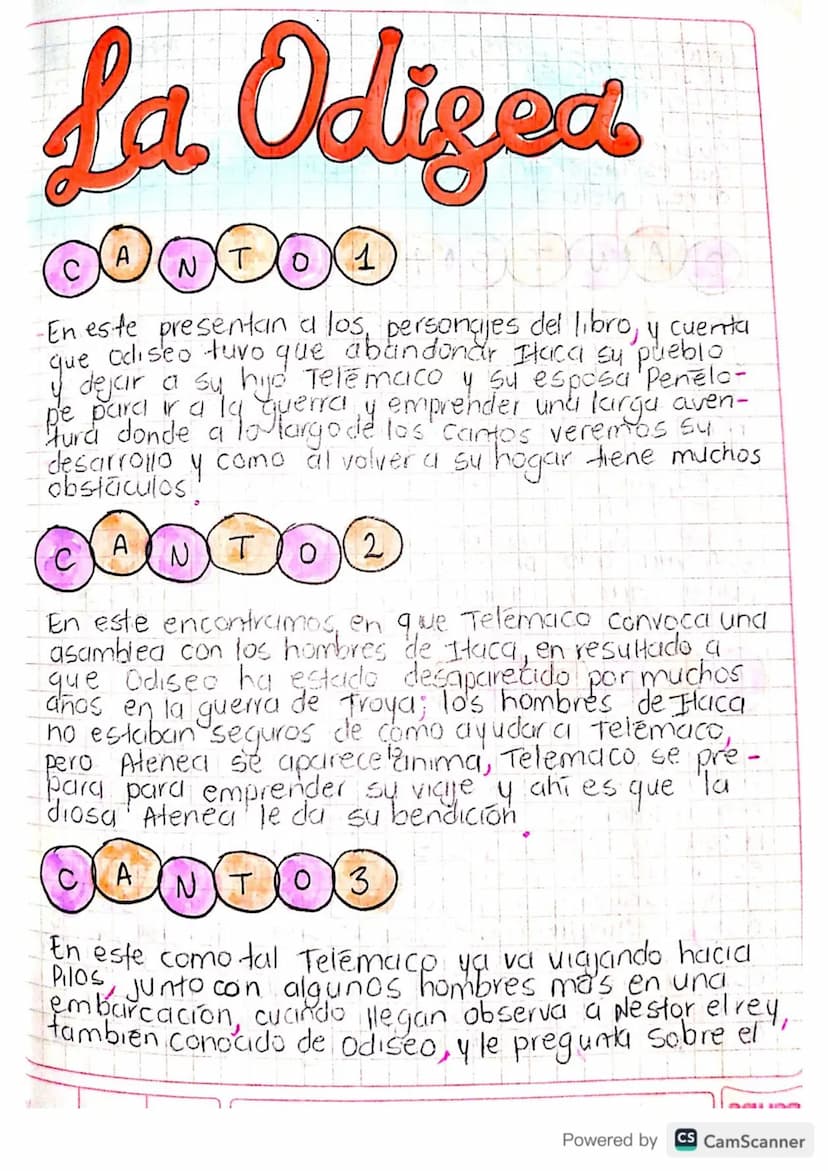 La Odisea
CANTO 1
En este presentan a los, personajes del libro, y cuenta
que Odiseo tuvo que abandonar Itaca su pueblo
y dejar a su hijo Telémaco y su esposa Penélo-
pe para ir a la guerra y emprender una larga aven-
tura donde a lo largo de los cantos veremos su
desarrollo y como al volver a su hogar tiene muchos
obstáculos.
CANTO 2
En este encontramos, en que Telémaco convoca una
asamblea con los hombres de Itaca, en resultado a
que Odiseo ha estado desaparecido por muchos
años en la guerra de Troya; los hombres de Itaca
no estaban seguros de como ayudar a Telémaco,
pero Atenea se aparece anima, Telemaco se pre-
para para emprender su viaje y ahí es que la
diosa Atenea le da su bendición.
CANTO 3
En este como tal Telémaco ya va viajando hacia
Pilos, junto con algunos hombres más en una
embarcación, cuando llegan observa a Nestor el rey,
también conocido de Odiseo, y le pregunta sobre el
Powered by CS CamScanner